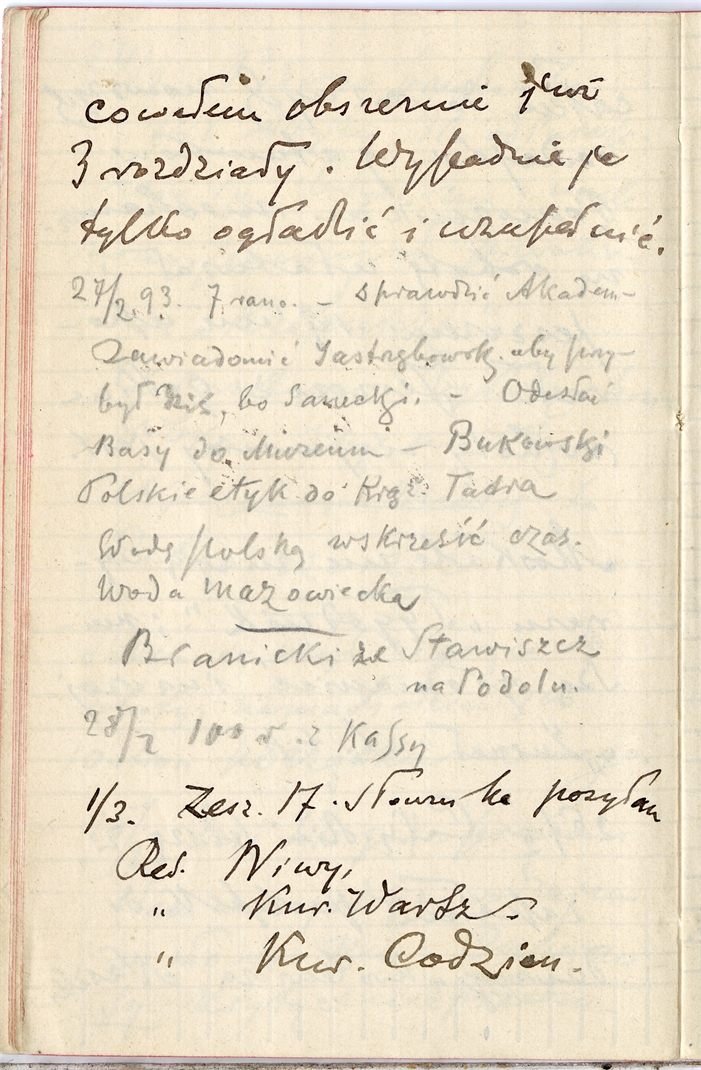 cowałem obszernie już
3 rozdziały. Wypadnie je
tylko ogładzić i uzupełnić.
27/2 93. 7 rano. – sprawdzić Akadem–
Zawiadomić Jastrzębowsk. aby przy–
był , bo Sanecki. – Odesłać
Basy do Muzeum – Bukowski
Polskie etyk do Księż. Tadra
Wodę polską wskrzesić czas.
Woda Mazowiecka
Branicki ze Stawiszcz
na Podolu.
28/2 100 z Kassy
1/3. Zesz. 17. Słownika posyłam
Red. Niwy,
„ Kur. Warsz.
„ Kur. Codzien.